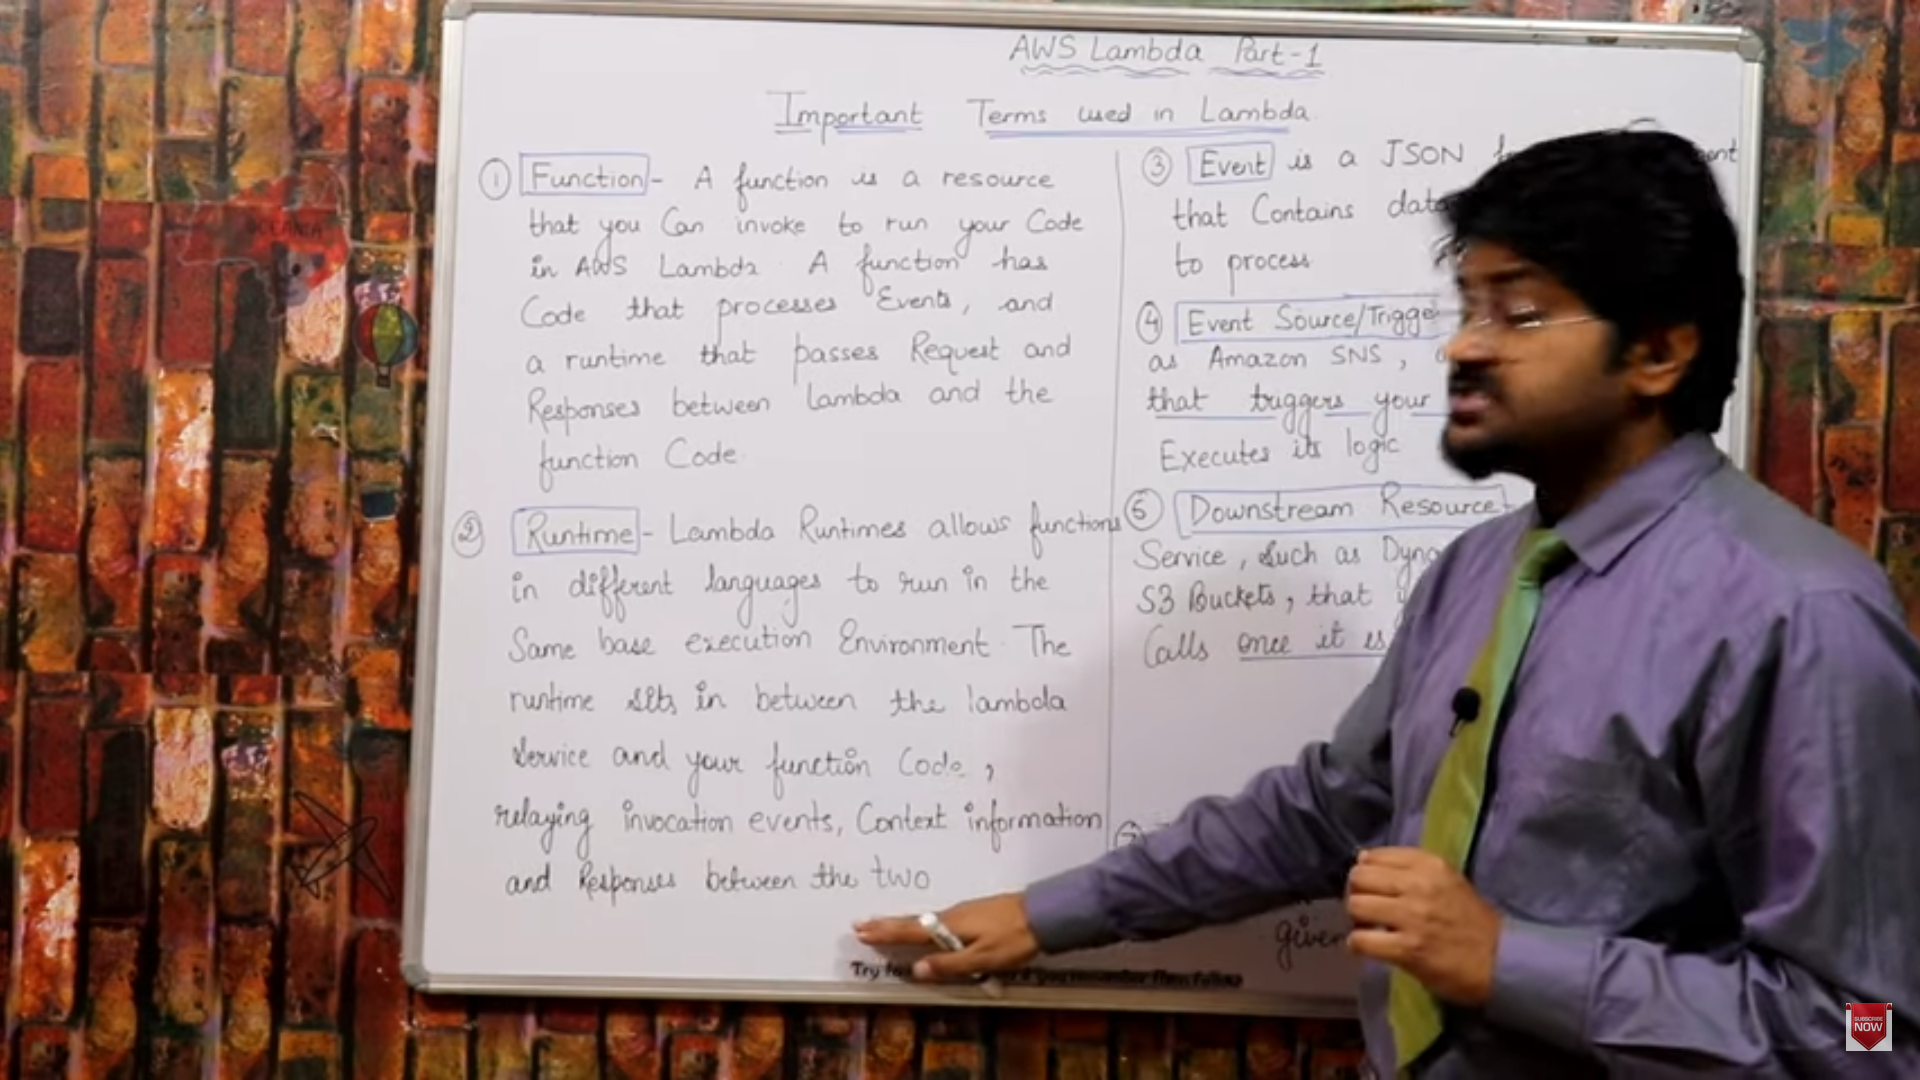 AWS Lambda Part-1
Important Terms used in Lambda.
① Function - A function is a resource
that you Can invoke to run your Code
in AWS Lambda. A function has
Code that processes Events, and
a runtime that passes Request and
Responses between Lambda and the
function Code.
② Runtime - Lambda Runtimes allows functions
in different languages to run in the
Same base execution Environment. The
runtime sits in between the lambda
Service and your function Code,
relaying invocation events, Context information
and Responses between the two
③ Event is a JSON
that Contains data
to process
④ Event Source/Trigge
as Amazon SNS,
that triggers your
Executes its logic
⑥ Downstream Resource
Service, Such as Dyna
S3 Buckets, that
Calls once it is
given
Try
OCEANIA
SUBSCRIBE
NOW